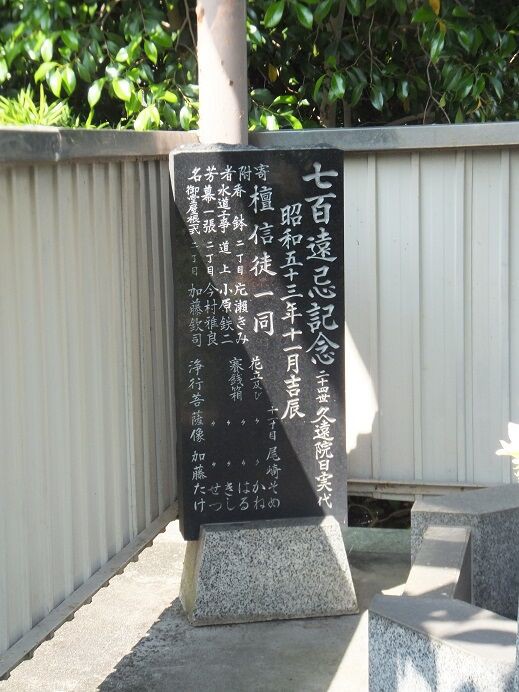 七百遠忌記念 二十四世 久遠院日実代
昭和五十三年十一月吉辰
檀信徒一同
寄附者芳名
香鉢 二丁目 片瀬きみ
水道工事 道上 小原鉄二
幕一張 二丁目 今村雅良
御堂屋根式 二丁目 加藤欽司
花立及び賽銭箱 十一丁目 尾崎そめ
〃 〃 かね
〃 〃 はる
〃 〃 きし
〃 〃 せつ
浄行菩薩像 加藤たけ